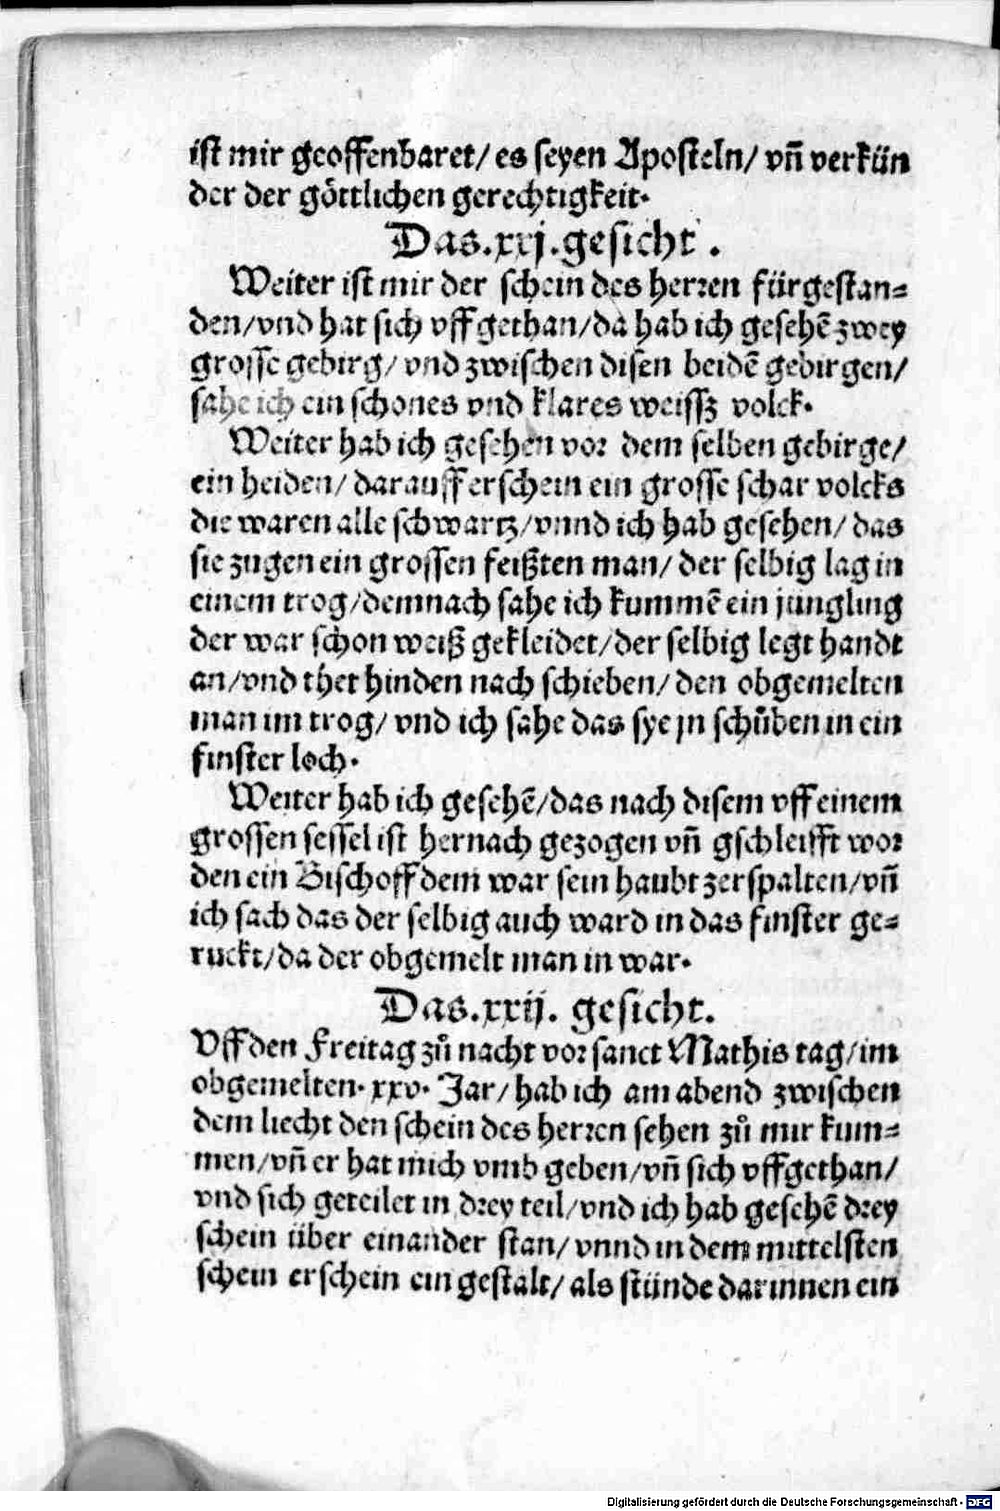 ist mir geoffenbaret/ es seyen Aposteln/ vñ verkün
der der göttlichen gerechtigkeit.
Das.xxj.gesicht.
Weiter ist mir der schein des herren fürgestan=
den/vnd hat sich vffgethan/da hab ich gesehẽ zwey
grosse gebirg/ vnd zwischen disen beidẽ gebirgen/
sahe ich ein schones vnd klares weissz volck.
Weiter hab ich gesehen vor dem selben gebirge/
ein heiden/ darauff erschein ein grosse schar volcks
die waren alle schwartz/vnnd ich hab gesehen/ das
sie zugen ein grossen feißten man/ der selbig lag in
einem trog/demnach sahe ich kummẽ ein jüngling
der war schon weiß gekleidet/der selbig legt handt
an/vnd thet hinden nach schieben/ den obgemelten
man im trog/ vnd ich sahe das sye jn schůben in ein
finster loch.
Weiter hab ich gesehẽ/das nach disem vff einem
grossen sessel ist hernach gezogen vñ gschleifft wor
den ein Bischoff dem war sein haubt zerspalten/vñ
ich sach das der selbig auch ward in das finster ge=
ruckt/da der obgemelt man in war.
Das.xxij. gesicht.
Vff den Freitag zů nacht vor sanct Mathis tag/im
obgemelten. xxv. Jar/ hab ich am abend zwischen
dem liecht den schein des herren sehen zů mir kum=
men/vñ er hat mich vmb geben/vñ sich vffgethan/
vnd sich geteilet in drey teil/vnd ich hab gesehẽ drey
schein über einander stan/ vnnd in dem mittelsten
schein erschein ein gestalt/ als stünde darinnen ein
Digitalisierung gefördert durch die Deutsche Forschungsgemeinschaft - DFG